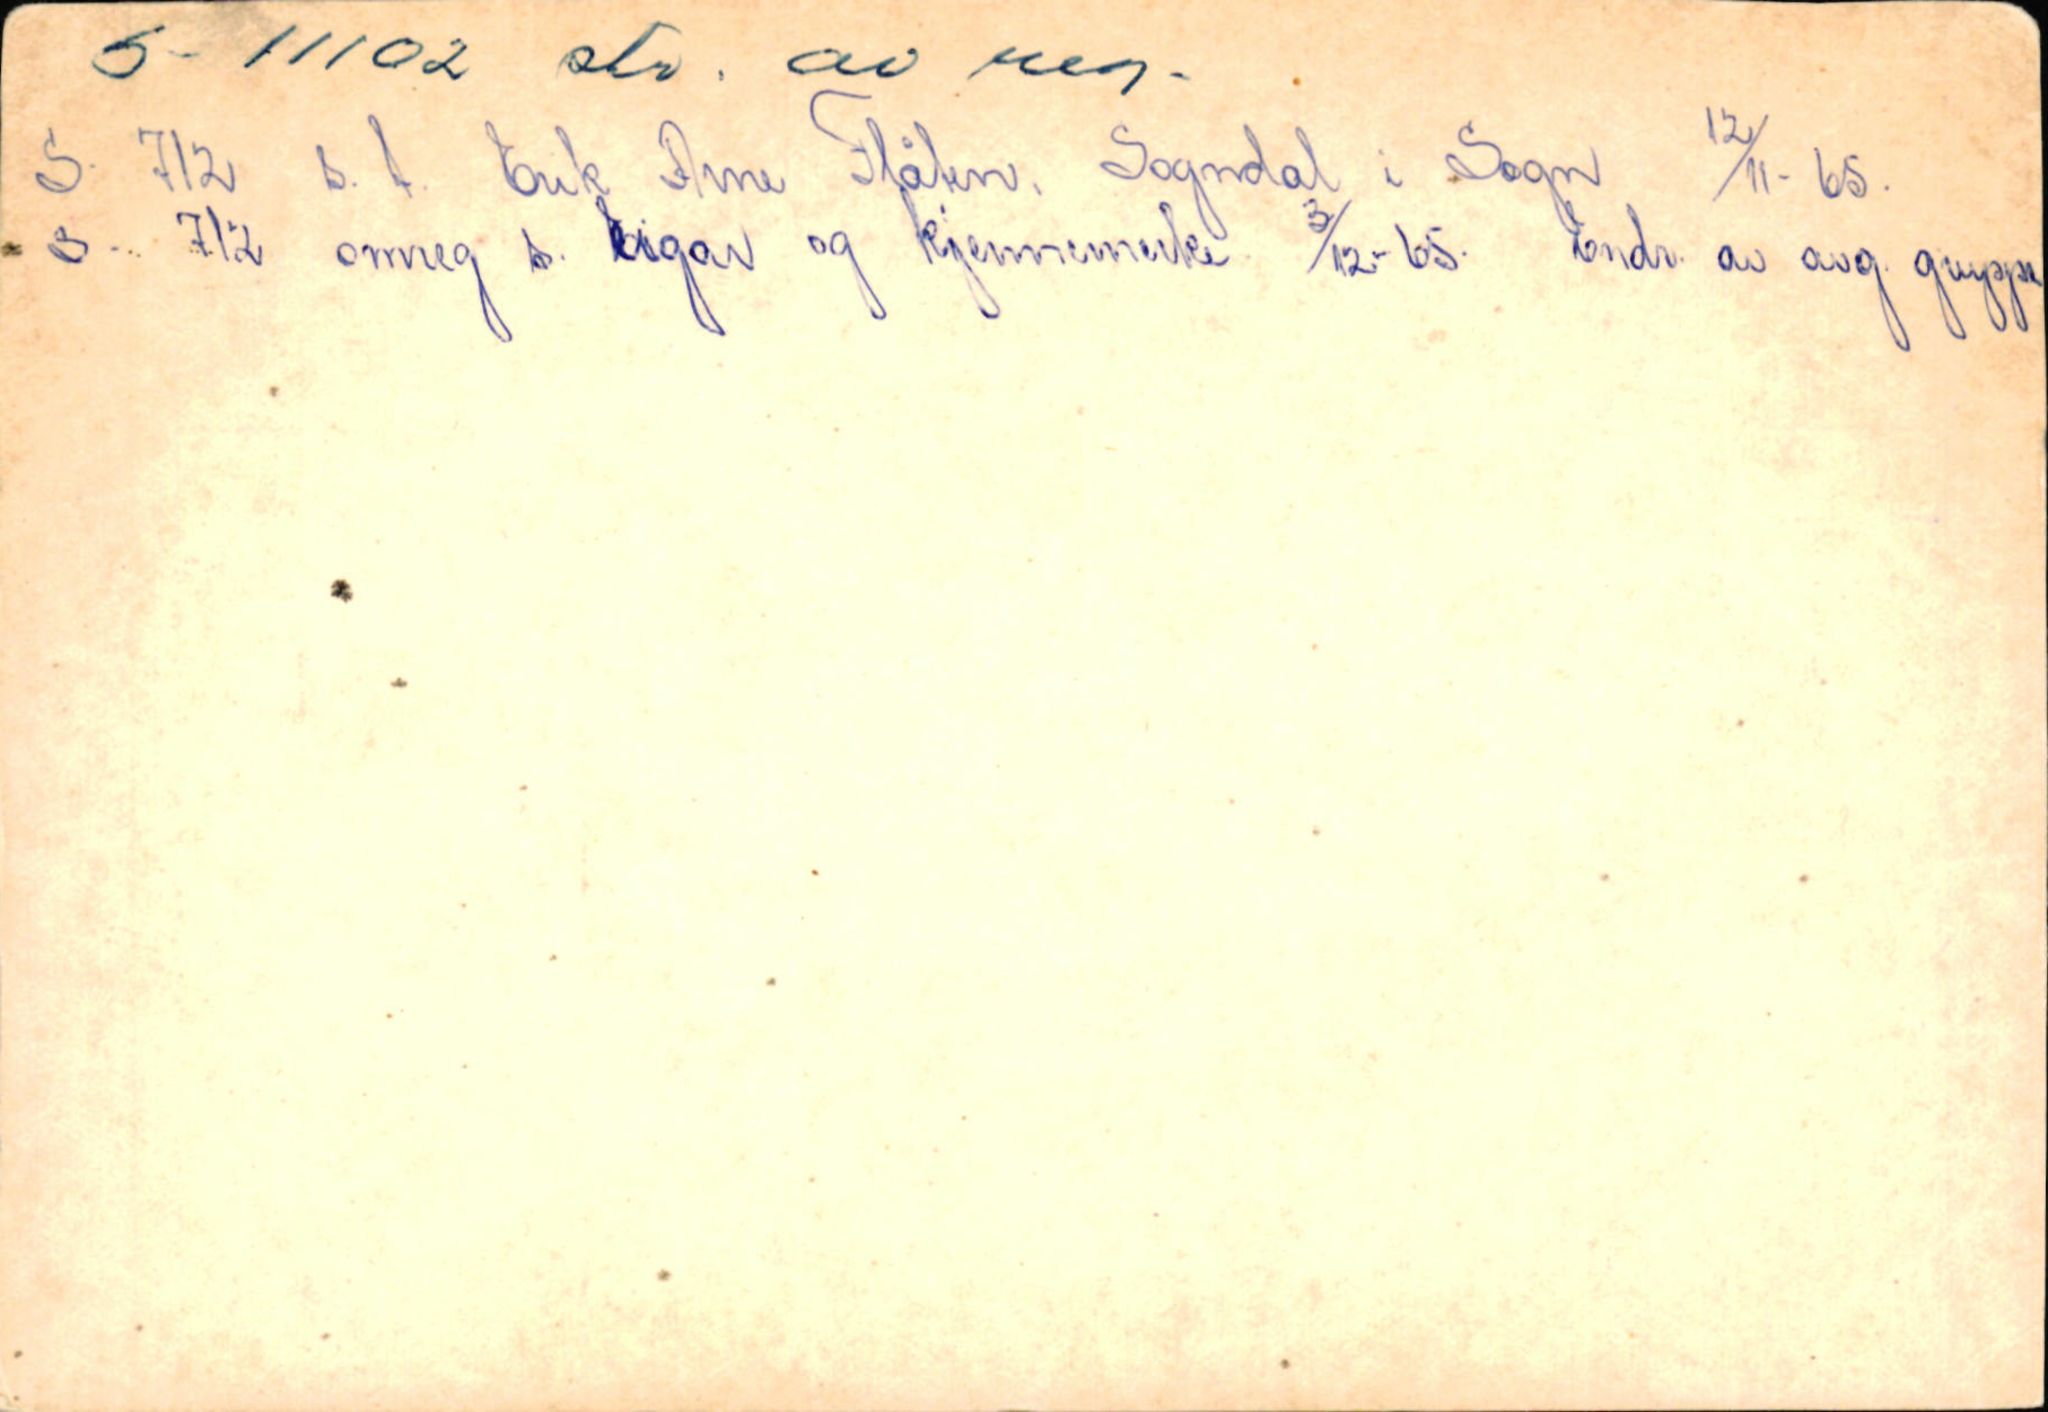 S- 11102 str. av reg.
S. 712 s. f. Erik Arne Flåten, Sogndal i Sogn 12/11- 65.
S- 712 omreg s. eigar og kjennemerke 3/12- 65. Endr. av avg. gruppe